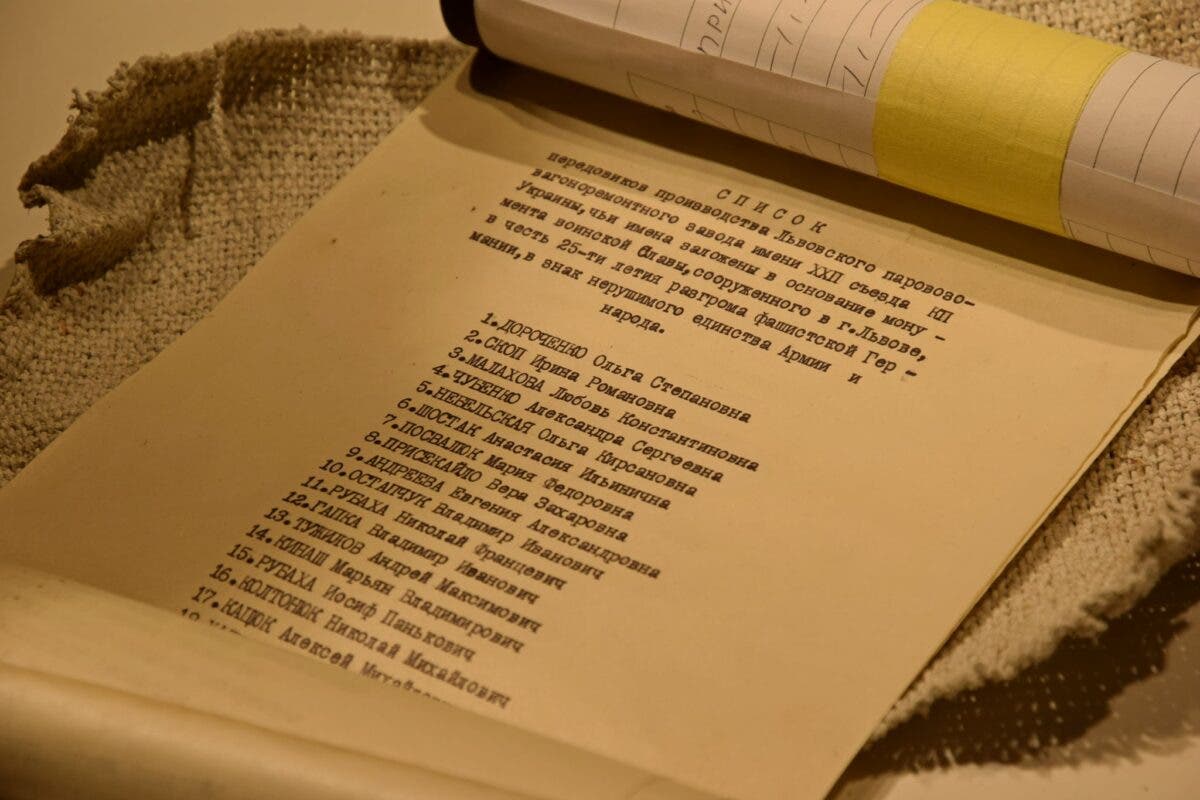 С П И С О К
передовиков производства Львовского паровозо-
вагоноремонтного завода имени XXП съезда КП
Украины, чьи имена заложены в основание мону -
мента воинской Славы, сооруженного в г.Львове,
в честь 25-ти летия разгрома фашистской Гер -
мании, в знак нерушимого единства Армии и
народа.
1.ДОРОЧЕНКО Ольга Степановна
2.СКОП Ирина Романовна
3.МАЛАХОВА Любовь Константиновна
4.ЧУБЕНКО Александра Сергеевна
5.НЕБЕЛЬСКАЯ Ольга Кирсановна
6.ШОСТАК Анастасия Ильинична
7.ПОСВАЛЮК Мария Федоровна
8.ПРИСЕКАЙЛО Вера Захаровна
9.АНДРЕЕВА Евгения Александровна
10.ОСТАПЧУК Владимир Иванович
11.РУБАХА Николай Францевич
12.ГАПКА Владимир Иванович
13.ТУЖИЛОВ Андрей Максимович
14.КИНАШ Марьян Владимирович
15.РУБАХА Иосиф Панькович
16.КОЛТОНЮК Николай Михайлович
17.КАЦЮК Алексей